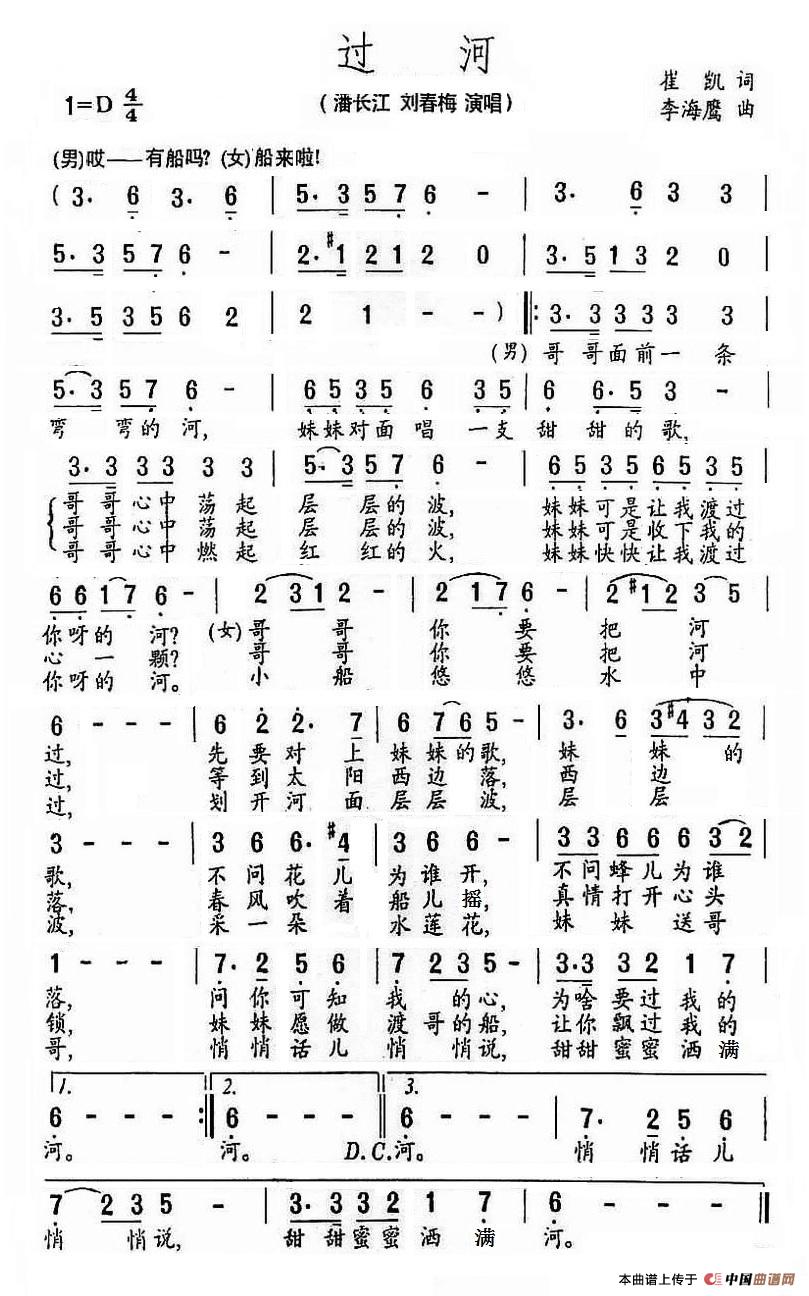 过 河
1=D 4/4
(潘长江 刘春梅 演唱)
崔 凯 词
李海鹰 曲
(男)哎——有船吗? (女)船来啦!
(3· 6 3· 6 | 5·3 5 7 6 - | 3· 6 3 3 |
5·3 5 7 6 - | 2·#1 2 1 2 0 | 3·5 1 3 2 0 |
3·5 3 5 6 2 | 2 1 - - ) ‖: 3·3 3 3 3 3 |
(男)哥 哥面前一 条
5·3 5 7 6 - | 6 5 3 5 6 3 5 | 6 6·5 3 - |
弯 弯的 河, 妹妹对面 唱 一支 甜 甜的 歌,
3·3 3 3 3 3 | 5·3 5 7 6 - | 6 5 3 5 6 5 3 5 |
哥哥心中 荡 起 层 层的 波, 妹妹可是让我渡过
哥哥心中 荡 起 层 层的 波, 妹妹可是收下我的
哥哥心中 燃 起 红 红的 火, 妹妹快快让我渡过
6 6 1 7 6 - | 2 3 1 2 - | 2 1 7 6 - | 2 #1 2 3 5 |
你呀的 河? (女)哥 哥 你 要 把 河
心 一 颗? 哥 哥 你 要 把 河
你呀的 河。 小 船 悠 悠 水 中
6 - - - | 6 2 2· 7 | 6 7 6 5 - | 3· 6 3 #4 3 2 |
过, 先 要 对 上 妹 妹的 歌, 妹 妹 的
过, 等 到 太 阳 西 边 落, 西 边
过, 划 开 河 面 层 层 波, 层 层
3 - - - | 3 6 6· #4 | 3 6 6 - | 3 3 6 6 6 3 2 |
歌, 不 问 花 儿 为 谁 开, 不 问 蜂 儿 为 谁
落, 春 风 吹 着 船 儿 摇, 真 情 打 开 心 头
波, 采 一 朵 水 莲 花, 妹 妹 送 哥
1 - - - | 7· 2 5 6 | 7 2 3 5 - | 3·3 3 2 1 7 |
落, 问 你 可 知 我 的 心, 为啥 要过 我 的
锁, 妹 妹 愿 做 渡 哥的 船, 让你 飘过 我 的
哥, 悄 悄 话 儿 悄 悄 说, 甜甜 蜜蜜 洒 满
1. 2. 3.
6 - - - :‖ 6 - - - ‖ 6 - - - | 7· 2 5 6 |
河。 河。 D.C.河。 悄 悄 话 儿
7 2 3 5 - | 3·3 3 2 1 7 | 6 - - - ‖
悄 悄 说, 甜 甜 蜜蜜 洒 满 河。
本曲谱上传于 中国曲谱网